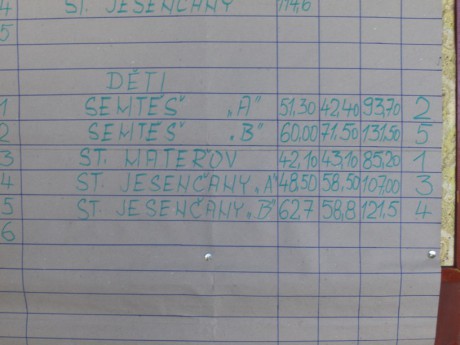 4 ST. JESENČANY 114,6
5
DĚTI
1 SEMTĚŠ „A" 51.30 42,40 93,70 2
2 SEMTĚŠ „B" 60,00 71.50 131.50 5
3 ST. MATEŘOV 42,10 43,10 85,20 1
4 ST. JESENČANY „A" 48,50 58,50 107,00 3
5 ST. JESENČANY „B" 62,7 58,8 121,5 4
6